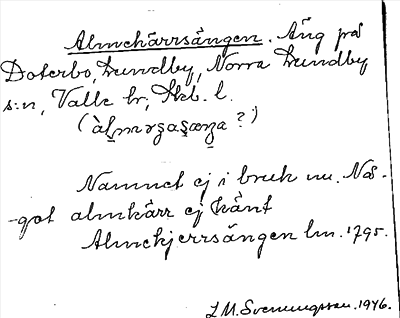 Almekärrsängen. Äng på
Doterbo, Lundby, Norra Lundby
s:n, Valle hr, Skb. l.
Namnet ej i bruk nu. Nå-
got almkärr ej känt
Almekjerrsängen lm. 1795.
J.M. Svenungsson. 1946.